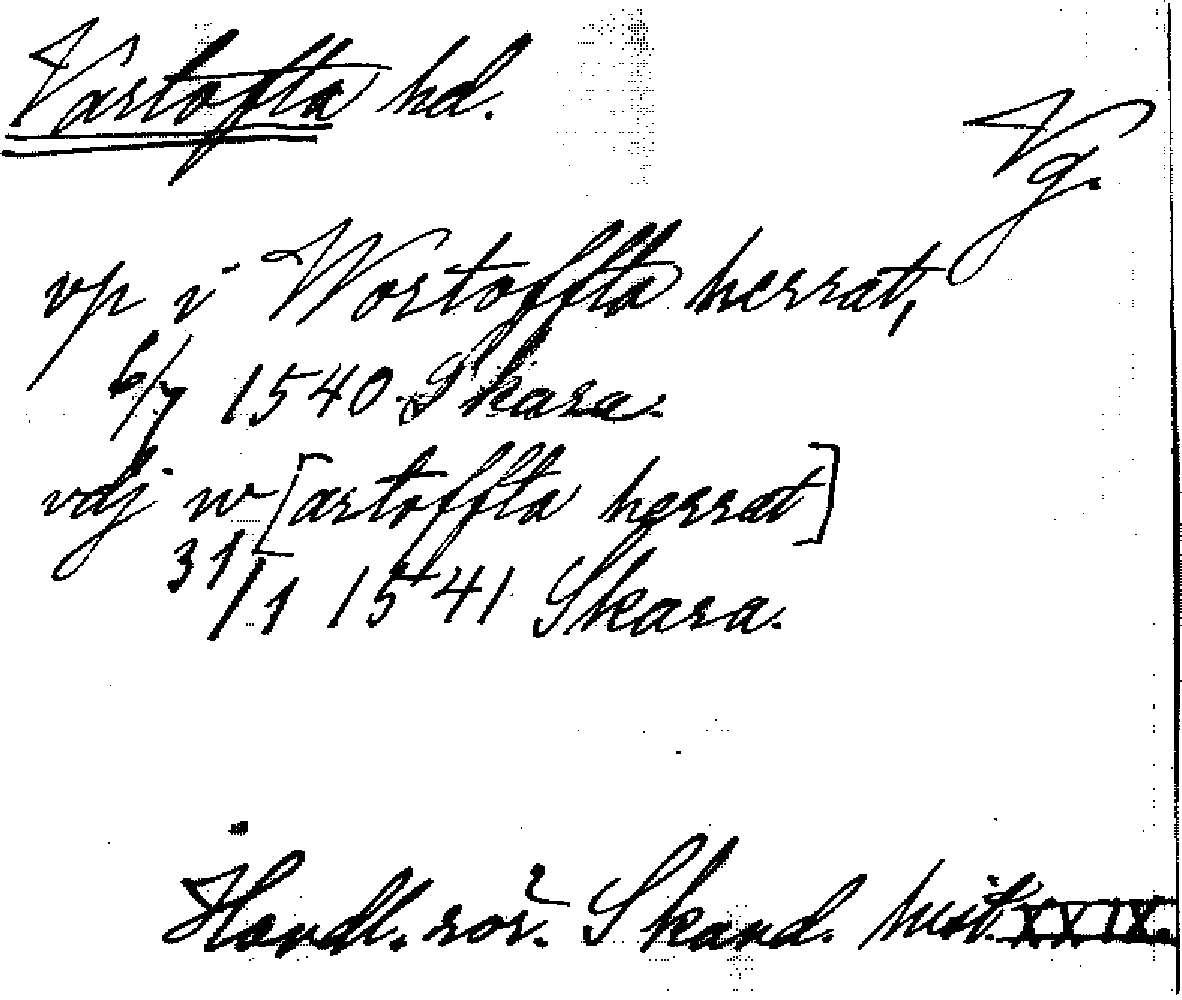 Vartofta hd.
Vg.
vp i Wortoffta herrat,
6/7 1540 Skara.
vdj w[artoffta herrat]
31/1 1541 Skara.
Handl. rör. Skand. hist. XXIX.